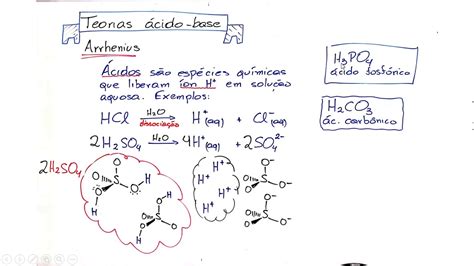 Teorias ácido-base
Arrhenius
Ácidos são espécies químicas
que liberam íon H⁺ em solução
aquosa. Exemplos:
HCl —H₂O→ H⁺(aq) + Cl⁻(aq)
dissociação
2H₂SO₄ —H₂O→ 4H⁺(aq) + 2SO₄²⁻
2H₂SO₄
O O H
S
O O
H
O O H
S
O O
H
H⁺ H⁺
H⁺ H⁺
O O⁻
S
O O⁻
O O⁻
S
O O⁻
H₃PO₄
ácido fosfórico
H₂CO₃
ác. carbônico